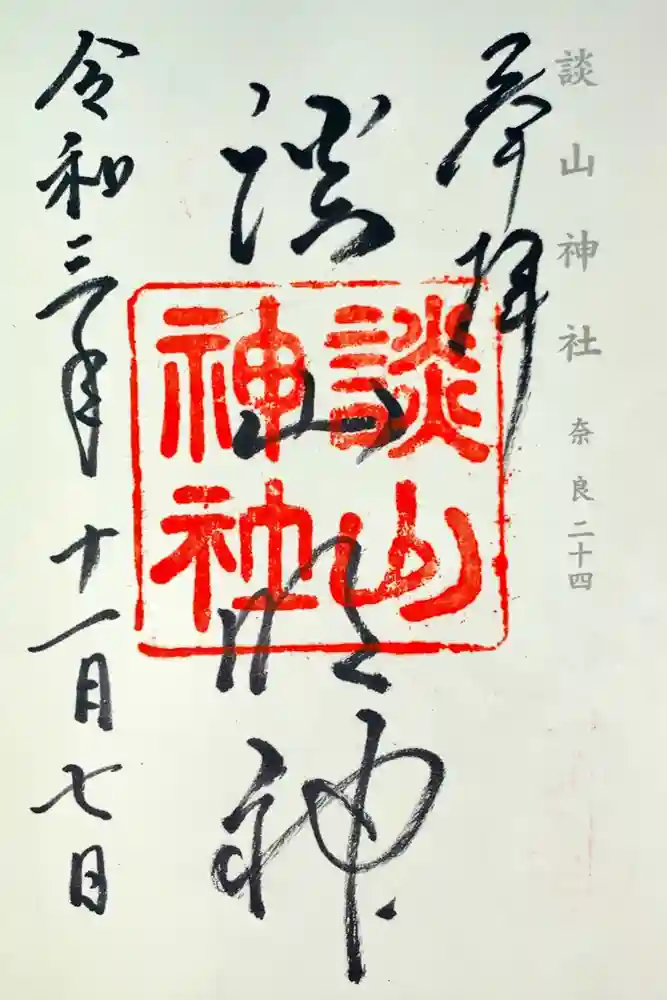 談山神社 奈良二十四
奉拝
談山明神
談山神社
令和三年十一月七日